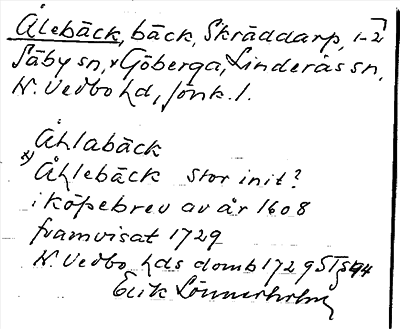 Ålebäck, bäck, Skräddarp, 1-2
Säby sn, + Göberga, Linderås sn,
N. Vedbo hd, Jönk. l.
Åhlabäck
x) Åhlebäck stor init?
i köpebrev av år 1608
framvisat 1729
N. Vedbo hds domb 1729 ST § 94
Erik Lönnerholm